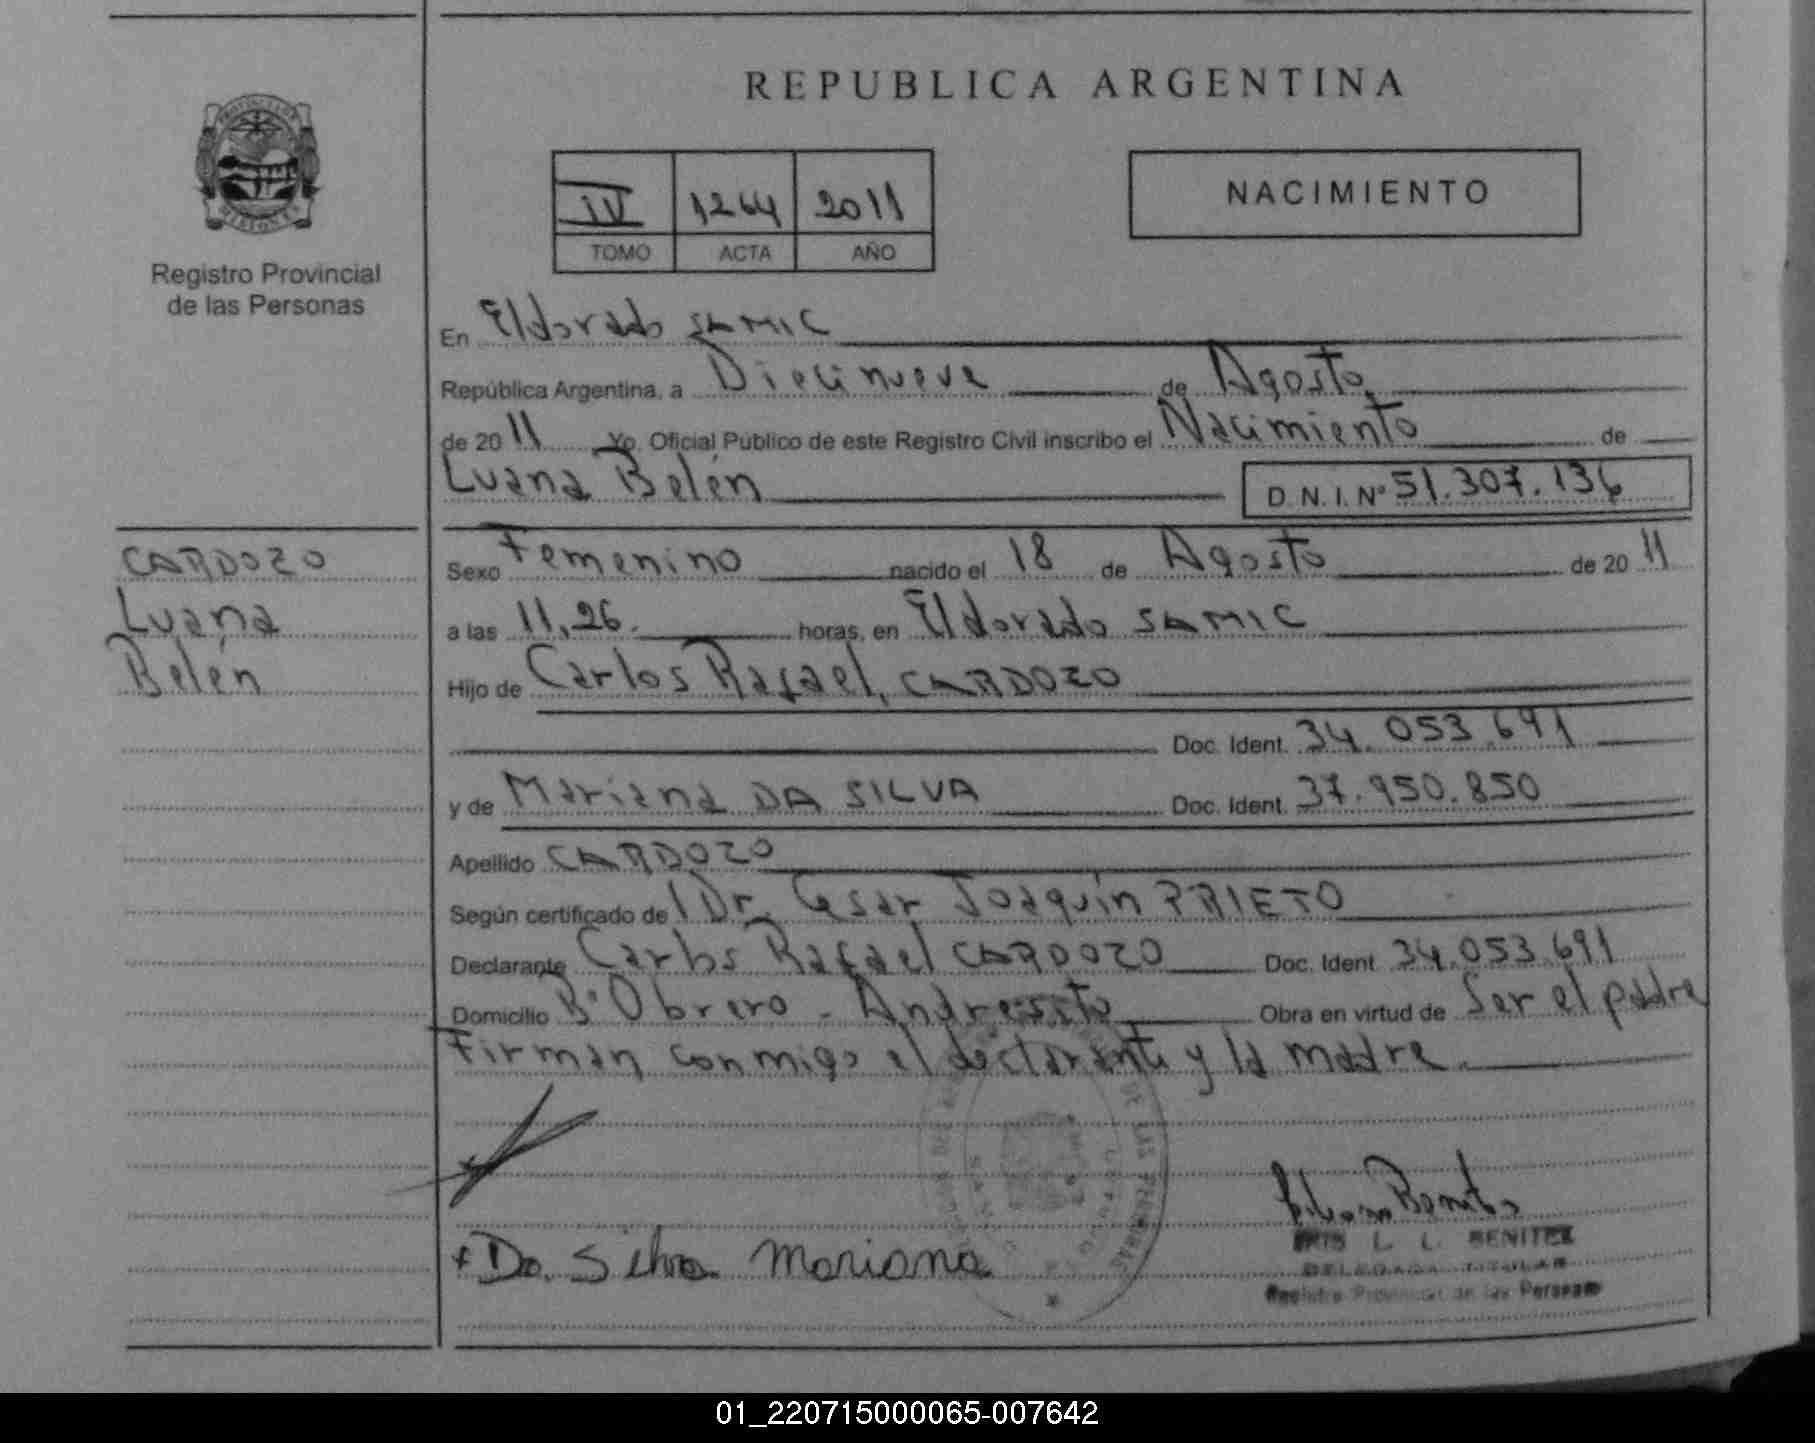 REPUBLICA ARGENTINA
IV 1264 2011
TOMO ACTA AÑO
NACIMIENTO
PROVINCIA DE
MISIONES
Registro Provincial
de las Personas
En Eldorado SAMIC
República Argentina, a Diecinueve de Agosto
de 2011 Yo, Oficial Público de este Registro Civil inscribo el Nacimiento de
Luana Belén D.N.I. Nº 51.307.136
CARDOZO
Luana
Belén
Sexo Femenino nacido el 18 de Agosto de 2011
a las 11,26. horas, en Eldorado SAMIC
Hijo de Carlos Rafael, CARDOZO
Doc. Ident. 34.053.691
y de Mariana DA SILVA Doc. Ident. 37.950.850
Apellido CARDOZO
Según certificado del Dr. Cesar Joaquín PRIETO
Declarante Carlos Rafael CARDOZO Doc. Ident 34.053.691
Domicilio Bº Obrero - Andresito Obra en virtud de Ser el padre
Firman conmigo el declarante y la madre.
DE LAS PERSONAS
+ Da. Silva Mariana
L. L. BENITEZ
DELEGADA TITULAR
Registro Provincial de las Personas
01_220715000065-007642